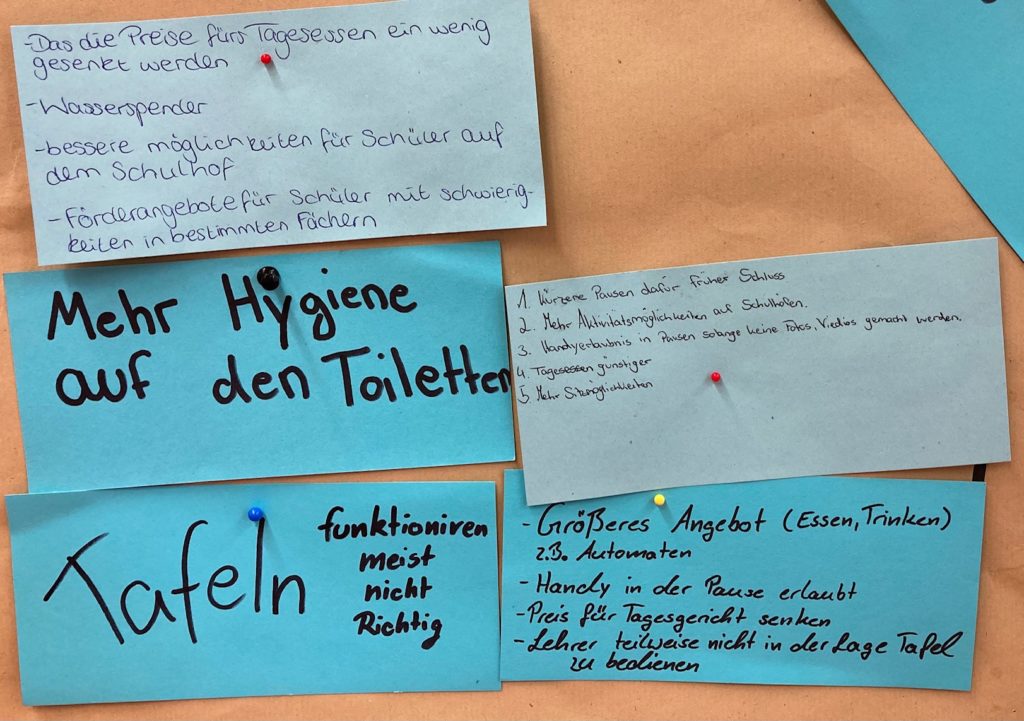 -Das die Preise fürs Tagesessen ein wenig
gesenkt werden
-Wasserspender
-bessere möglichkeiten für Schüler auf
dem Schulhof
-Förderangebote für Schüler mit schwierig-
keiten in bestimmten Fächern
Mehr Hygiene
auf den Toiletten
1. Kürzere Pausen dafür früher Schluss
2. Mehr Aktivitätsmöglichkeiten auf Schulhöfen.
3. Handyerlaubnis in Pausen solange keine Fotos, Viedios gemacht werden.
4. Tagesessen günstiger
5. Mehr Sitzmöglichkeiten
Tafeln
funktioniren
meist
nicht
Richtig
- Größeres Angebot (Essen, Trinken)
z.B. Automaten
- Handy in der Pause erlaubt
- Preis für Tagesgericht senken
- Lehrer teilweise nicht in der Lage Tafel
zu bedienen